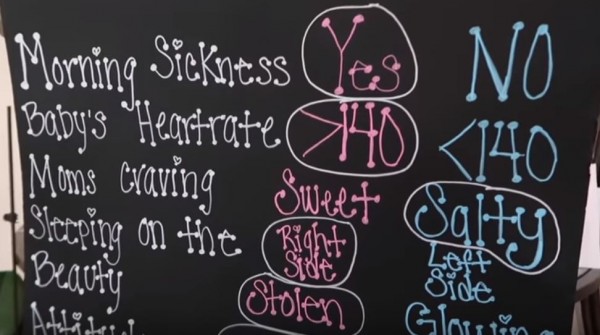 Morning Sickness Yes NO
Baby's Heartrate >140 <140
Moms craving Sweet Salty
Sleeping on the Right Side Left Side
Beauty Stolen Glowing